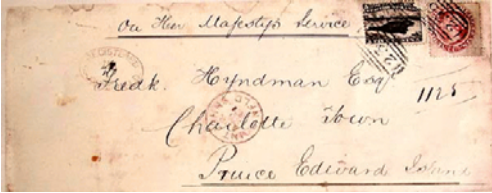 On Her Majesty's Service
REGISTERED
Fredk. Hyndman Esqr
1125
Charlotte Town
Prince Edward Island